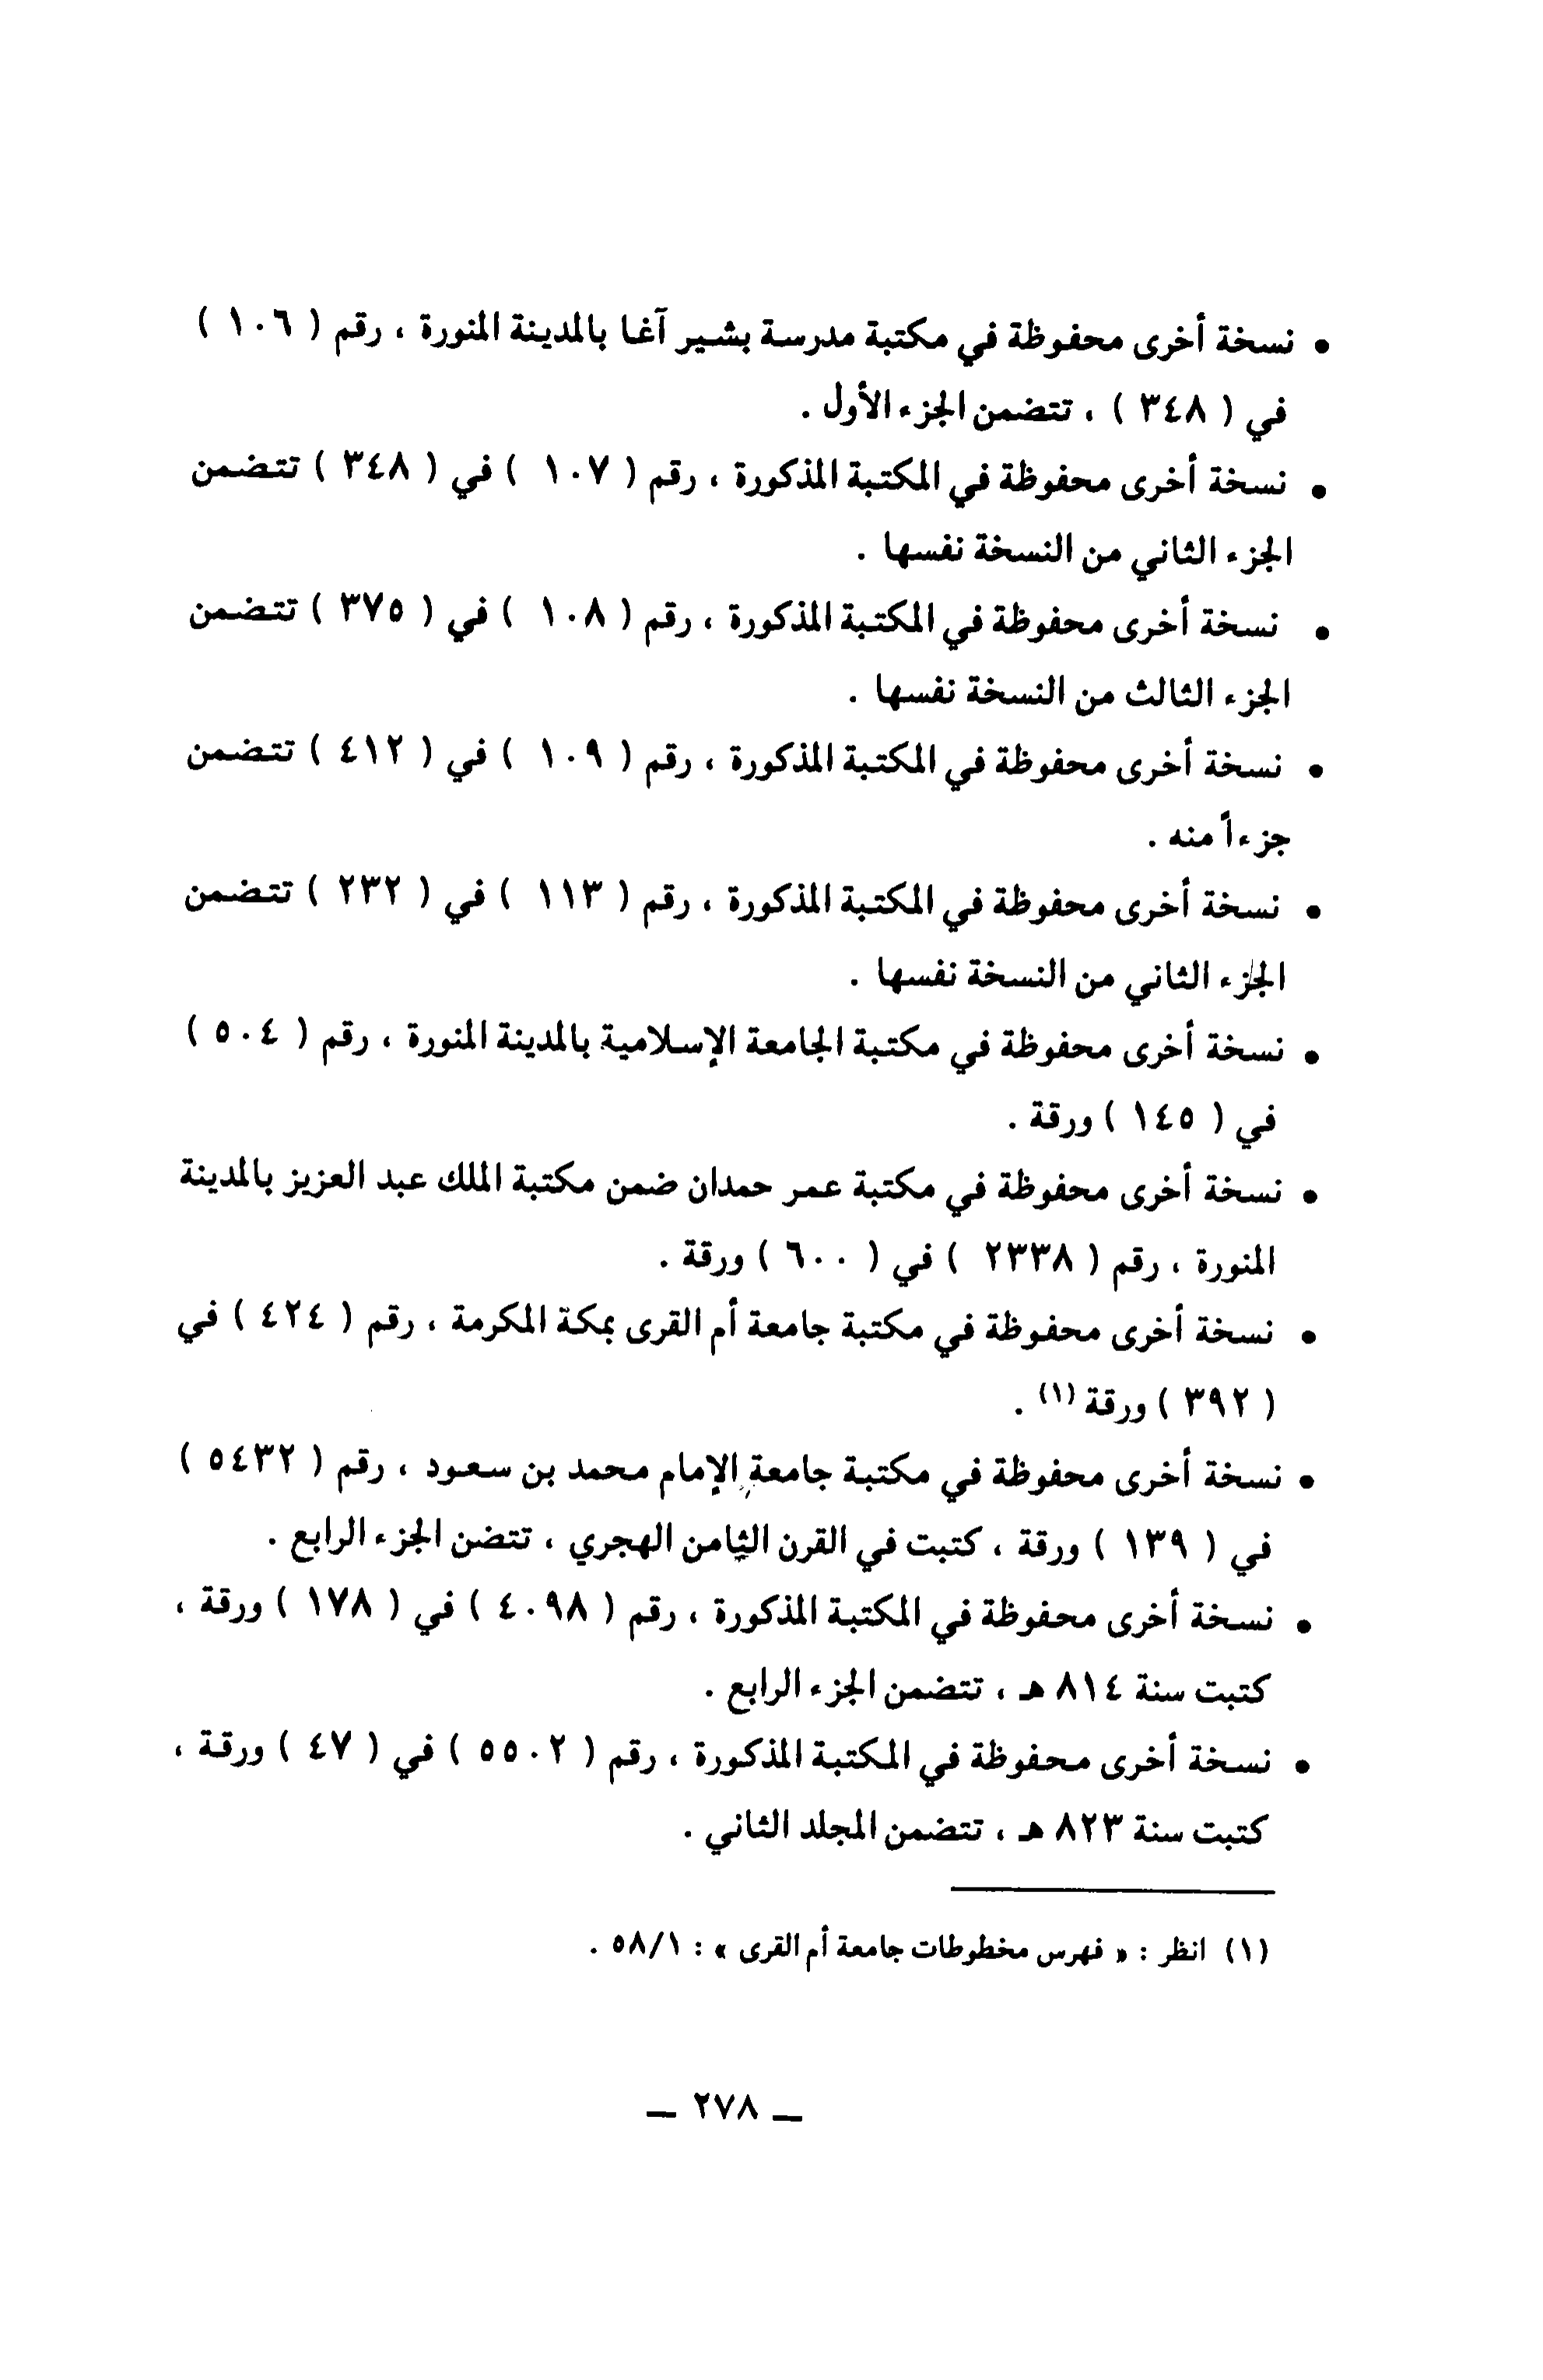 • نسخة أخرى محفوظة في مكتبة مدرسة بشير آغا بالمدينة المنورة ، رقم ( ١٠٦ )
في ( ٣٤٨ ) ، تتضمن الجزء الأول .
• نسخة أخرى محفوظة في المكتبة المذكورة ، رقم ( ١٠٧ ) في ( ٣٤٨ ) تتضمن
الجزء الثاني من النسخة نفسها .
• نسخة أخرى محفوظة في المكتبة المذكورة ، رقم ( ١٠٨ ) في ( ٣٧٥ ) تتضمن
الجزء الثالث من النسخة نفسها .
• نسخة أخرى محفوظة في المكتبة المذكورة ، رقم ( ١٠٩ ) في ( ٤١٢ ) تتضمن
جزءاً منه .
• نسخة أخرى محفوظة في المكتبة المذكورة ، رقم ( ١١٣ ) في ( ٢٣٢ ) تتضمن
الجزء الثاني من النسخة نفسها .
• نسخة أخرى محفوظة في مكتبة الجامعة الإسلامية بالمدينة المنورة ، رقم ( ٥٠٤ )
في ( ١٤٥ ) ورقة .
• نسخة أخرى محفوظة في مكتبة عمر حمدان ضمن مكتبة الملك عبد العزيز بالمدينة
المنورة ، رقم ( ٢٣٣٨ ) في ( ٦٠٠ ) ورقة .
• نسخة أخرى محفوظة في مكتبة جامعة أم القرى بمكة المكرمة ، رقم ( ٤٢٤ ) في
( ٣٩٢ ) ورقة (١) .
• نسخة أخرى محفوظة في مكتبة جامعة الإمام محمد بن سعود ، رقم ( ٥٤٣٢ )
في ( ١٣٩ ) ورقة ، كتبت في القرن الثامن الهجري ، تتضن الجزء الرابع .
• نسخة أخرى محفوظة في المكتبة المذكورة ، رقم ( ٤٠٩٨ ) في ( ١٧٨ ) ورقة ،
كتبت سنة ٨١٤ هـ ، تتضمن الجزء الرابع .
• نسخة أخرى محفوظة في المكتبة المذكورة ، رقم ( ٥٥٠٢ ) في ( ٤٧ ) ورقة ،
كتبت سنة ٨٢٣ هـ ، تتضمن المجلد الثاني .
(١) انظر : « فهرس مخطوطات جامعة أم القرى » : ٥٨/١ .
ـ ٢٧٨ ـ